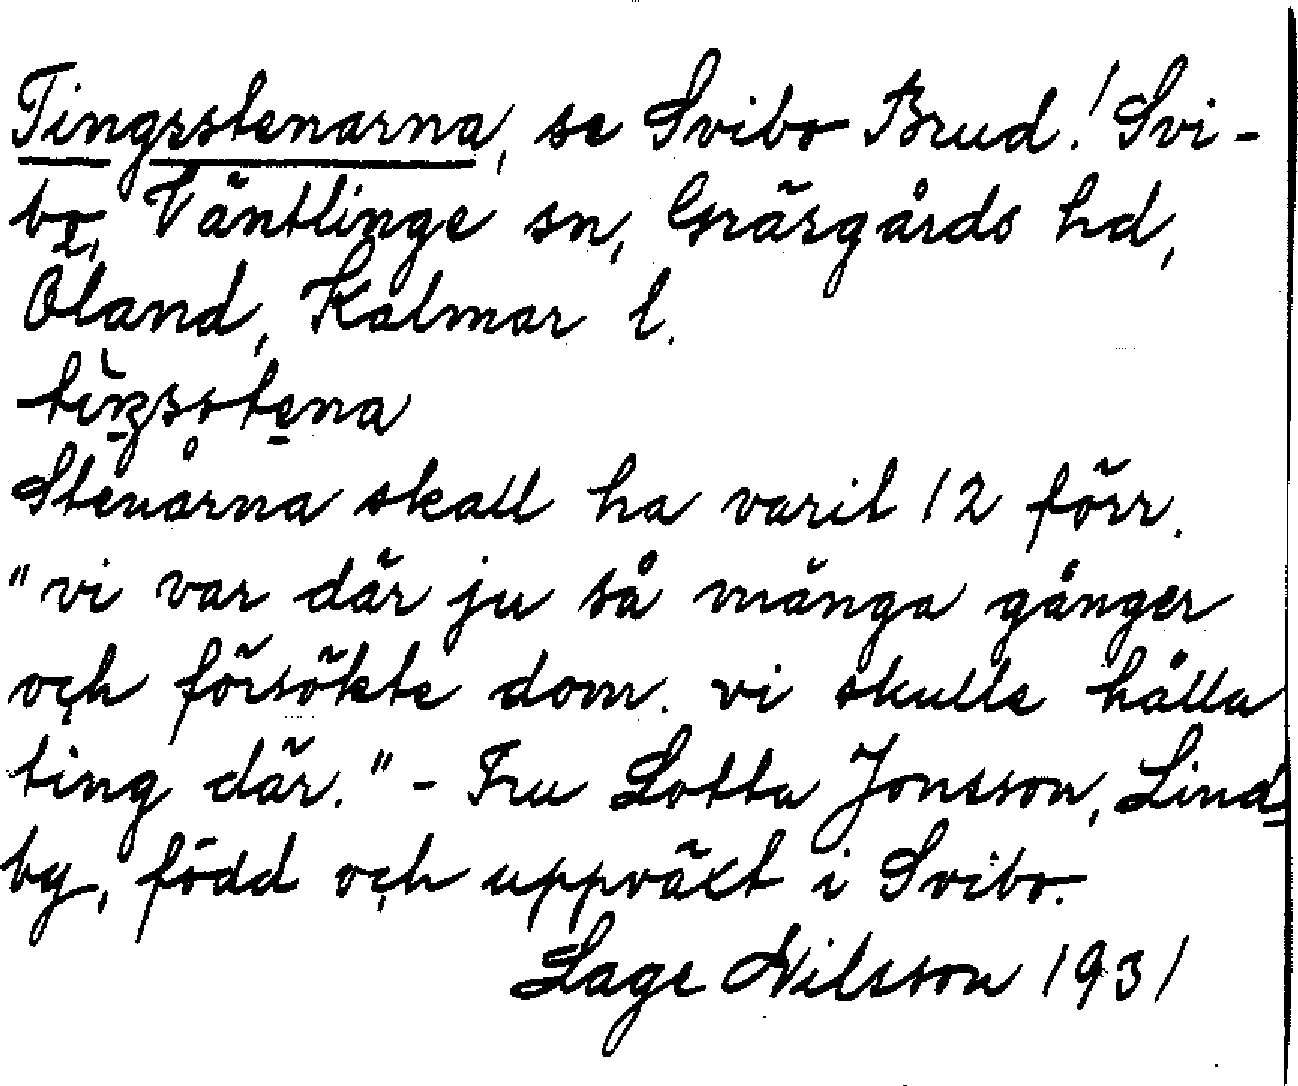 Tingsstenarna, se Svibo Brud! Svi-
bo, Väntlinge sn, Gräsgårds hd,
Öland, Kalmar l.
Stenarna skall ha varit 12 förr.
"vi var där ju så många gånger
och försökte dom. vi skulle hålla
ting där." - Fru Lotta Jonsson, Lind-
by, född och uppväxt i Svibo.
Lage Nilsson 1931